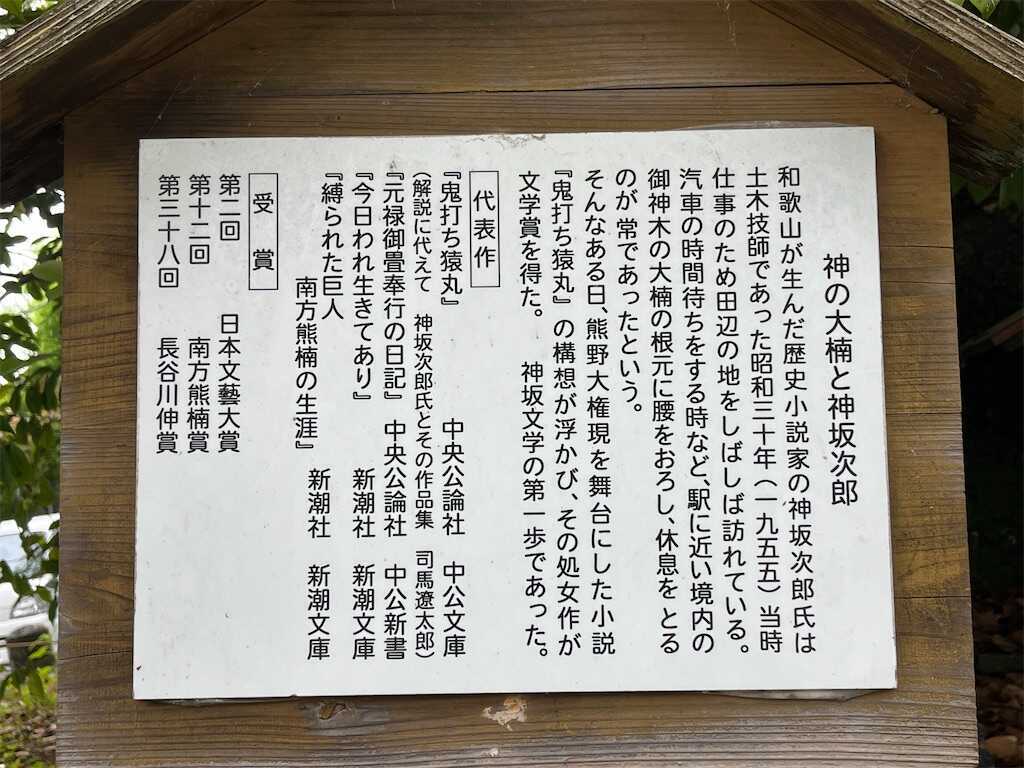 神の大楠と神坂次郎
和歌山が生んだ歴史小説家の神坂次郎氏は
土木技師であった昭和三十年（一九五五）当時
仕事のため田辺の地をしばしば訪れている。
汽車の時間待ちをする時など、駅に近い境内の
御神木の大楠の根元に腰をおろし、休息をとる
のが常であったという。
そんなある日、熊野大権現を舞台にした小説
『鬼打ち猿丸』の構想が浮かび、その処女作が
文学賞を得た。　神坂文学の第一歩であった。
代表作
『鬼打ち猿丸』　中央公論社　中公文庫
（解説に代えて　神坂次郎氏とその作品集　司馬遼太郎）
『元禄御畳奉行の日記』　中央公論社　中公新書
『今日われ生きてあり』　新潮社　新潮文庫
『縛られた巨人
南方熊楠の生涯』　新潮社　新潮文庫
受賞
第二回　日本文藝大賞
第十二回　南方熊楠賞
第三十八回　長谷川伸賞